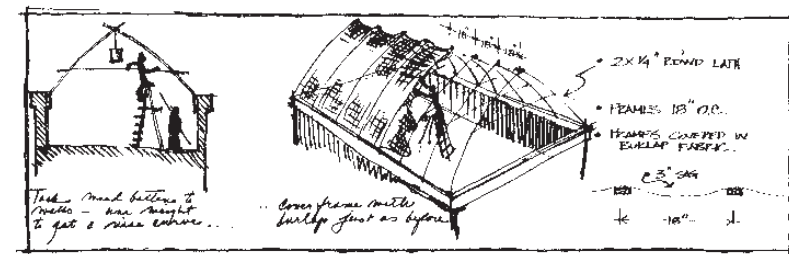 Tack wood battens to
walls – use weight
to get a nice curve...
.. cover frame with
burlap just as before
18" 18" 18"
• 2 x ¼" BEND LATH
• FRAMES 18" O.C.
• FRAMES COVERED IN
BURLAP FABRIC..
3" SAG
18"